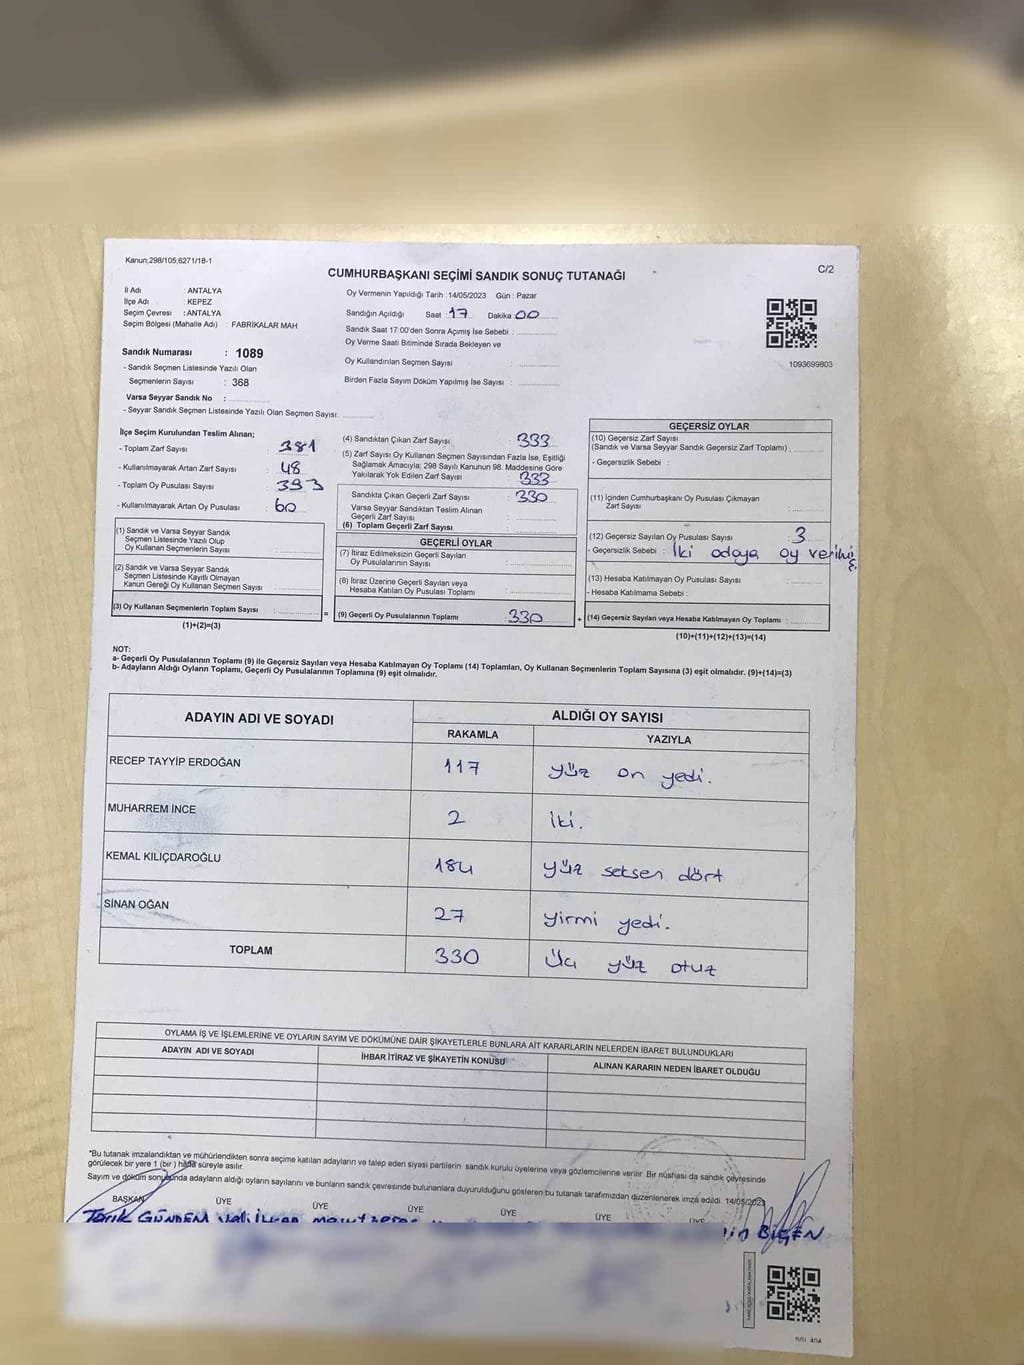 Kanun;298/105,6271/18-1
CUMHURBAŞKANI SEÇİMİ SANDIK SONUÇ TUTANAĞI
C/2
İl Adı : ANTALYA
İlçe Adı : KEPEZ
Seçim Çevresi : ANTALYA
Seçim Bölgesi (Mahalle Adı) : FABRİKALAR MAH
Sandık Numarası : 1089
- Sandık Seçmen Listesinde Yazılı Olan
Seçmenlerin Sayısı : 368
Varsa Seyyar Sandık No :
- Seyyar Sandık Seçmen Listesinde Yazılı Olan Seçmen Sayısı:
Oy Vermenin Yapıldığı Tarih : 14/05/2023 Gün : Pazar
Sandığın Açıldığı Saat : 17 Dakika : 00
Sandık Saat 17:00'den Sonra Açımış İse Sebebi :
Oy Verme Saati Bitiminde Sırada Bekleyen ve
Oy Kullandırılan Seçmen Sayısı :
Birden Fazla Sayım Döküm Yapılmış İse Sayısı :
1093699803
İlçe Seçim Kurulundan Teslim Alınan;
- Toplam Zarf Sayısı : 381
- Kullanılmayarak Artan Zarf Sayısı : 48
- Toplam Oy Pusulası Sayısı : 393
- Kullanılmayarak Artan Oy Pusulası : 60
(1) Sandık ve Varsa Seyyar Sandık
Seçmen Listesinde Yazılı Olup
Oy Kullanan Seçmenlerin Sayısı :
(2) Sandık ve Varsa Seyyar Sandık
Seçmen Listesinde Kayıtlı Olmayan
Kanun Gereği Oy Kullanan Seçmen Sayısı :
(3) Oy Kullanan Seçmenlerin Toplam Sayısı :
(1)+(2)=(3)
(4) Sandıktan Çıkan Zarf Sayısı : 333
(5) Zarf Sayısı Oy Kullanan Seçmen Sayısından Fazla İse, Eşitliği
Sağlamak Amacıyla; 298 Sayılı Kanunun 98. Maddesine Göre
Yakılarak Yok Edilen Zarf Sayısı : 333
Sandıkta Çıkan Geçerli Zarf Sayısı : 330
Varsa Seyyar Sandıktan Teslim Alınan
Geçerli Zarf Sayısı :
(6) Toplam Geçerli Zarf Sayısı :
GEÇERLİ OYLAR
(7) İtiraz Edilmeksizin Geçerli Sayılan
Oy Pusulalarının Sayısı :
(8) İtiraz Üzerine Geçerli Sayılan veya
Hesaba Katılan Oy Pusulası Toplamı :
= (9) Geçerli Oy Pusulalarının Toplamı : 330
GEÇERSİZ OYLAR
(10) Geçersiz Zarf Sayısı
(Sandık ve Varsa Seyyar Sandık Geçersiz Zarf Toplamı) :
- Geçersizlik Sebebi :
(11) İçinden Cumhurbaşkanı Oy Pusulası Çıkmayan
Zarf Sayısı :
(12) Geçersiz Sayılan Oy Pusulası Sayısı : 3
- Geçersizlik Sebebi : İki adaya oy verilmiş
(13) Hesaba Katılmayan Oy Pusulası Sayısı :
- Hesaba Katılmama Sebebi :
+ (14) Geçersiz Sayılan veya Hesaba Katılmayan Oy Toplamı :
(10)+(11)+(12)+(13)=(14)
NOT:
a- Geçerli Oy Pusulalarının Toplamı (9) ile Geçersiz Sayılan veya Hesaba Katılmayan Oy Toplamı (14) Toplamları, Oy Kullanan Seçmenlerin Toplam Sayısına (3) eşit olmalıdır. (9)+(14)=(3)
b- Adayların Aldığı Oyların Toplamı, Geçerli Oy Pusulalarının Toplamına (9) eşit olmalıdır.
ADAYIN ADI VE SOYADI
ALDIĞI OY SAYISI
RAKAMLA YAZIYLA
RECEP TAYYİP ERDOĞAN 117 yüz on yedi.
MUHARREM İNCE 2 iki.
KEMAL KILIÇDAROĞLU 184 yüz seksen dört
SİNAN OĞAN 27 yirmi yedi.
TOPLAM 330 üç yüz otuz
OYLAMA İŞ VE İŞLEMLERİNE VE OYLARIN SAYIM VE DÖKÜMÜNE DAİR ŞİKAYETLERLE BUNLARA AİT KARARLARIN NELERDEN İBARET BULUNDUKLARI
ADAYIN ADI VE SOYADI İHBAR İTİRAZ VE ŞİKAYETİN KONUSU ALINAN KARARIN NEDEN İBARET OLDUĞU
*Bu tutanak imzalandıktan ve mühürlendikten sonra seçime katılan adayların ve talep eden siyasi partilerin sandık kurulu üyelerine veya gözlemcilerine verilir. Bir nüshası da sandık çevresinde
görülecek bir yere 1 (bir) hafta süreyle asılır.
Sayım ve döküm sonucunda adayların aldığı oyların sayılarını ve bunların sandık çevresinde bulunanlara duyurulduğunu gösteren bu tutanak tarafımızdan düzenlenerek imza edildi. 14/05/2023
BAŞKAN ÜYE ÜYE ÜYE ÜYE ÜYE ÜYE
Tarık GÜNDEM BİÇEN